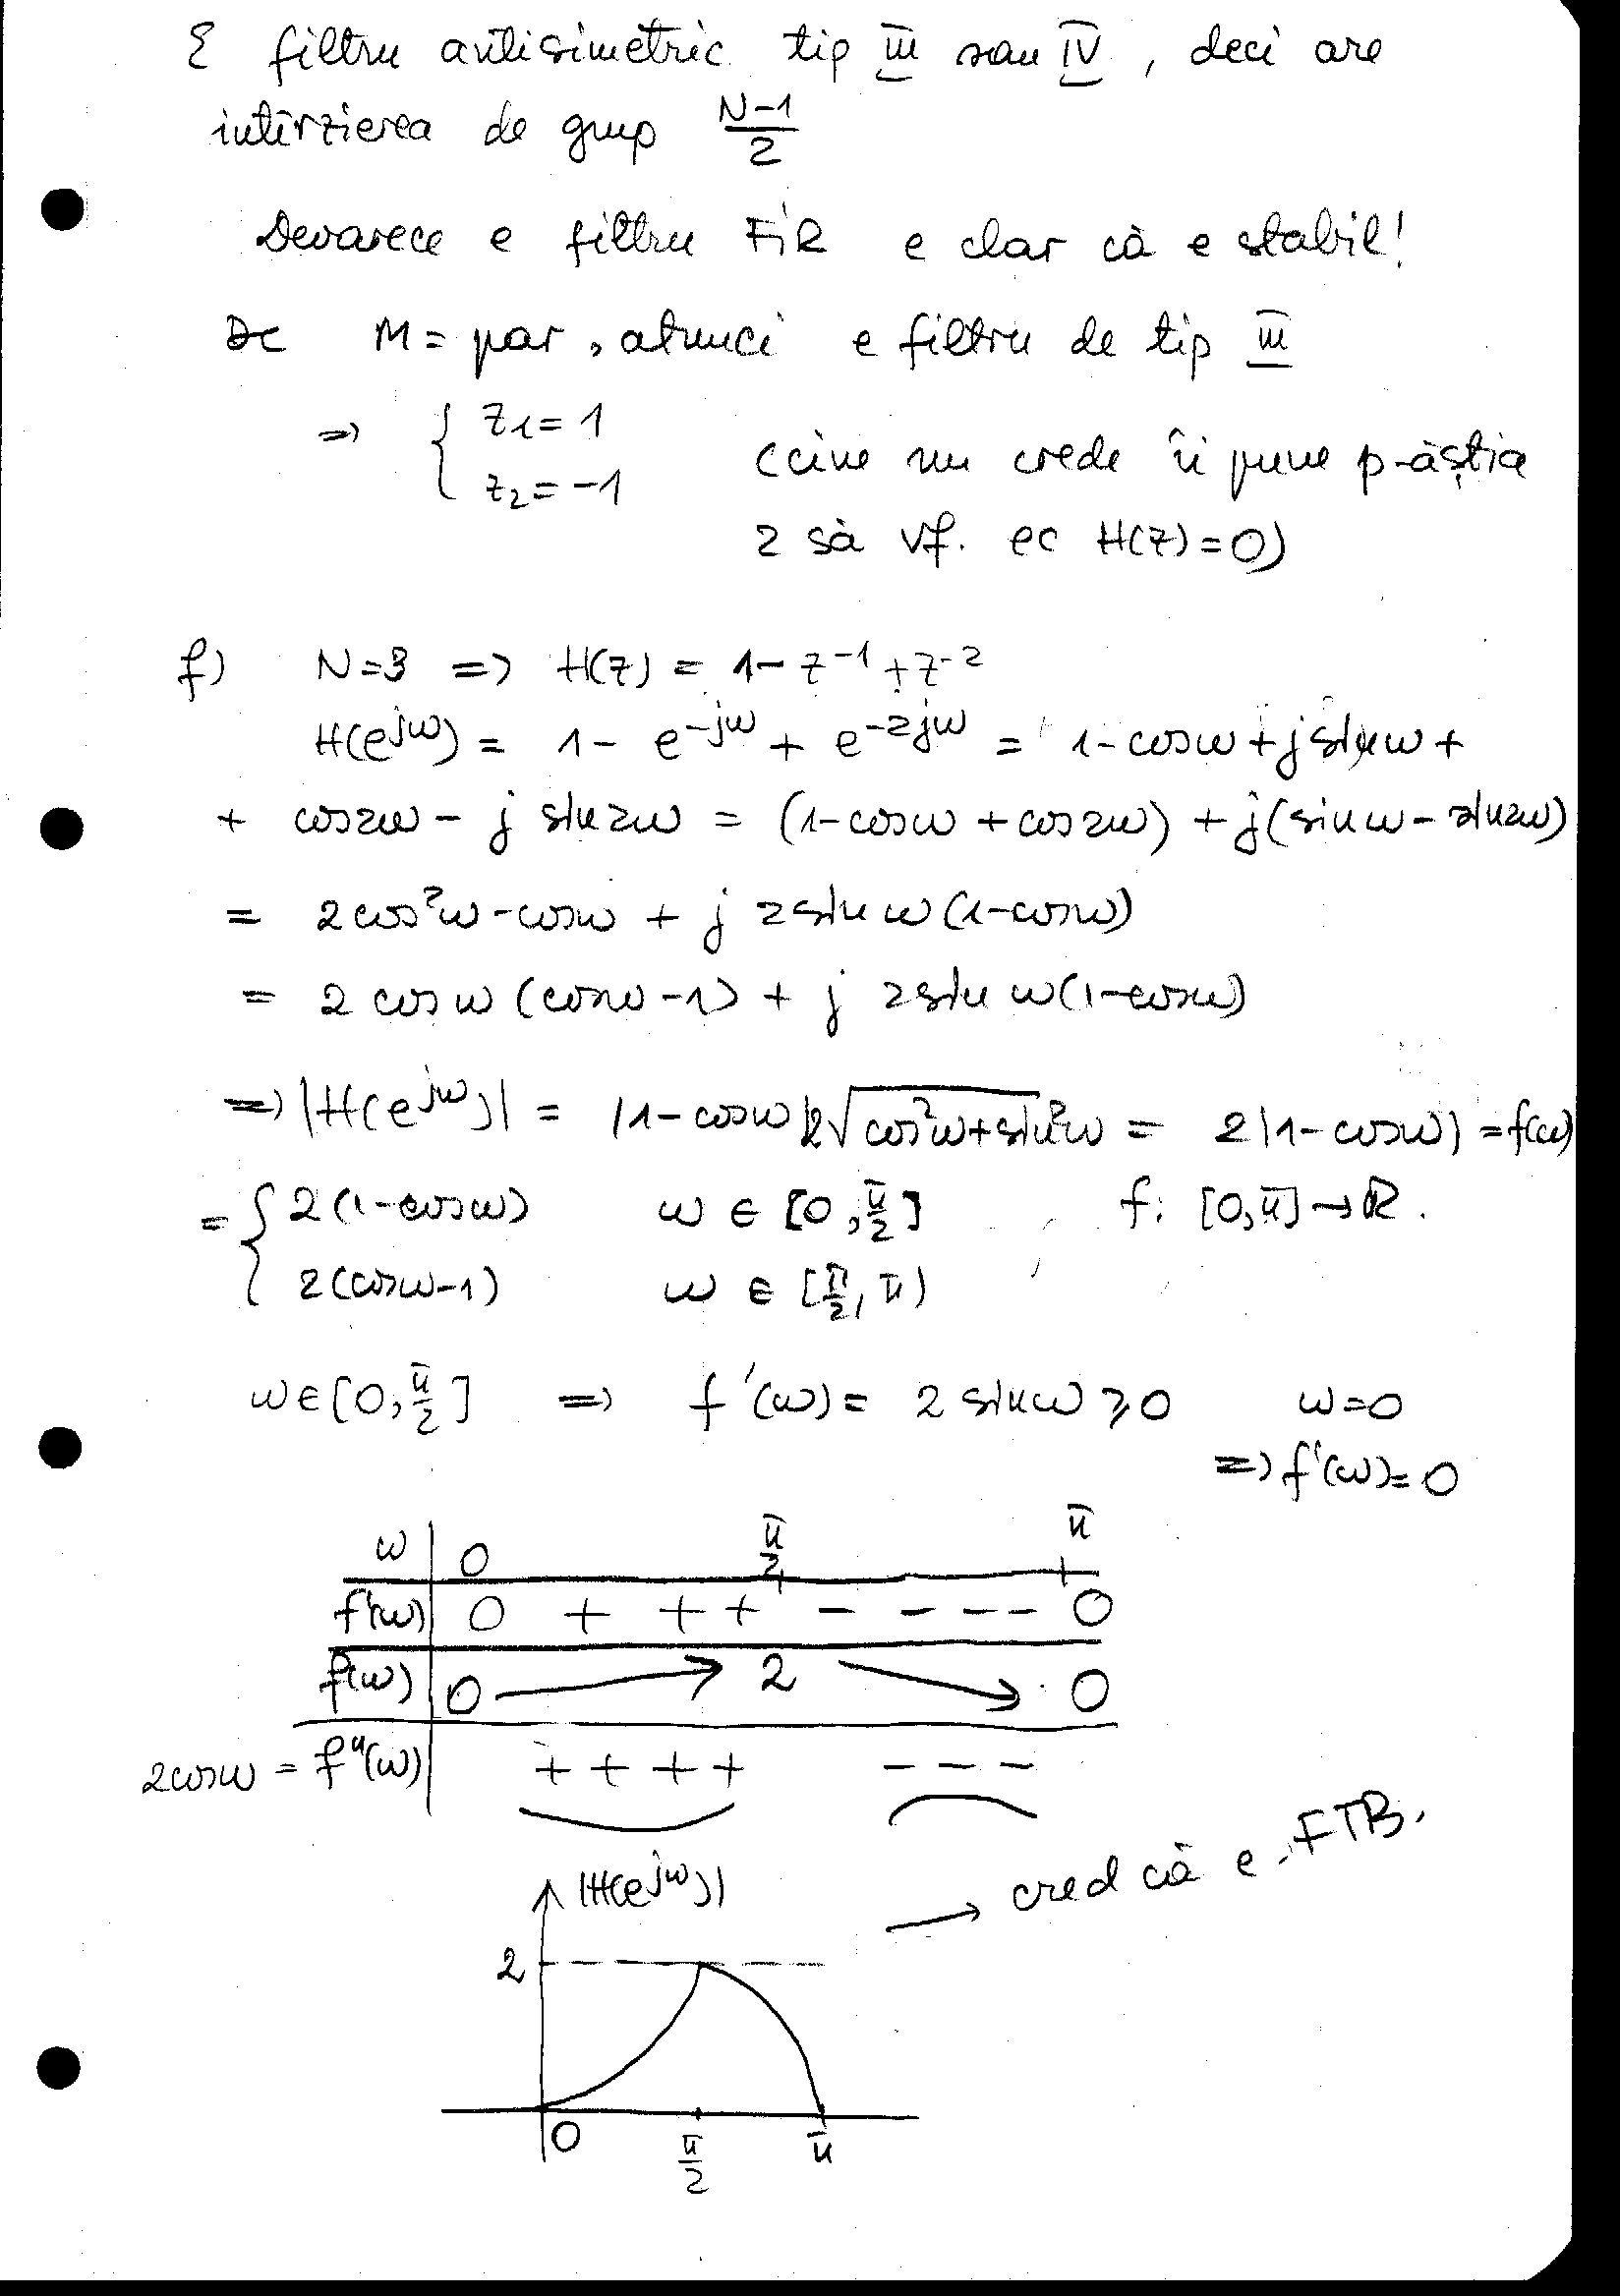 E filtru antisimetric tip III sau IV, deci are
intîrzierea de grup (N-1)/2
Deoarece e filtru FIR e clar că e stabil!
Dc M = par, atunci e filtru de tip III
=> { z₁ = 1
z₂ = -1
(cine nu crede îi pune p-ăștia
2 să vf. ec H(z)=0)
f) N=3 => H(z) = 1 - z⁻¹ + z⁻²
H(e^jω) = 1 - e^-jω + e^-2jω = 1 - cosω + j sinω +
+ cos2ω - j sin2ω = (1-cosω + cos2ω) + j(sinω - sin2ω)
= 2cos²ω - cosω + j 2sinω(1-cosω)
= 2cosω(cosω-1) + j 2sinω(1-cosω)
=> |H(e^jω)| = |1-cosω|2√(cos²ω+sin²ω) = 2|1-cosω| = f(ω)
= { 2(1-cosω) ω ∈ [0, π/2] , f: [0,π] → R.
2(cosω-1) ω ∈ [π/2, π)
ω ∈ [0, π/2] => f'(ω) = 2 sinω ≥ 0 ω=0
=> f'(ω) = 0
ω 0 π/2 π
f'(ω) 0 + + + - - - - 0
f(ω) 0 2 0
2cosω = f''(ω) + + + + - - -
→ cred că e FTB.
|H(e^jω)|
2
0 π/2 π